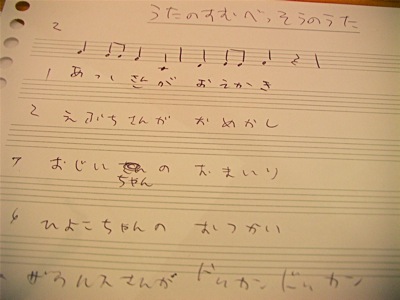 うたのすむべっそうのうた
2
1 あっしさんが おえかき
2 えぶちさんが おめかし
7 おじいちゃんの おまいり
6 ひよこちゃんの おつかい
さんが ドッカン ドッカン